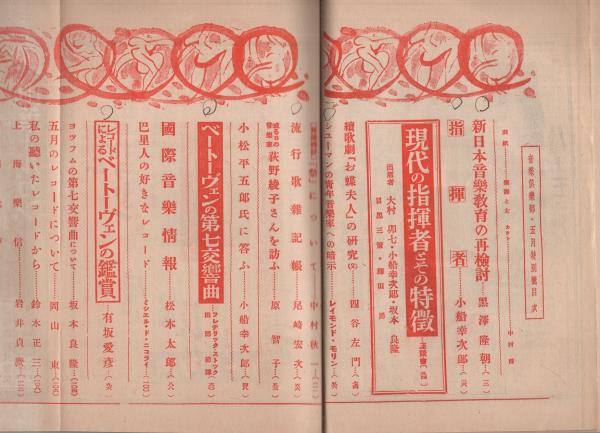 音樂倶樂部・五月特別號目次
新日本音樂教育の再檢討 黒澤隆朝…(三)
指揮者 小船幸次郎…
現代の指揮者とその特徴
出席者 大村卯七・小船幸次郎・坂本良隆
續歌劇「お蝶夫人」の研究 四谷左門…
シューマンの青年音樂家への暗示 レイモンド・モリン…
について 中村秋一…
流行歌雜記帳 尾崎宏次…
或る日の音樂家 荻野綾子さんを訪ふ 原智子…
小松平五郎氏に答ふ 小船幸次郎…
ベートーヴェンの第七交響曲 フレデリック・ストック
國際音樂情報 松本太郎…
巴里人の好きなレコード ミシエル・ド・ニコライ…
レコードによるベートーヴェンの鑑賞 有坂愛彦…
ヨツフムの第七交響曲について 坂本良隆…
五月のレコードについて 岡山東…
私の聽いたレコードから 鈴木正三…
上海樂信 岩井貞麿…